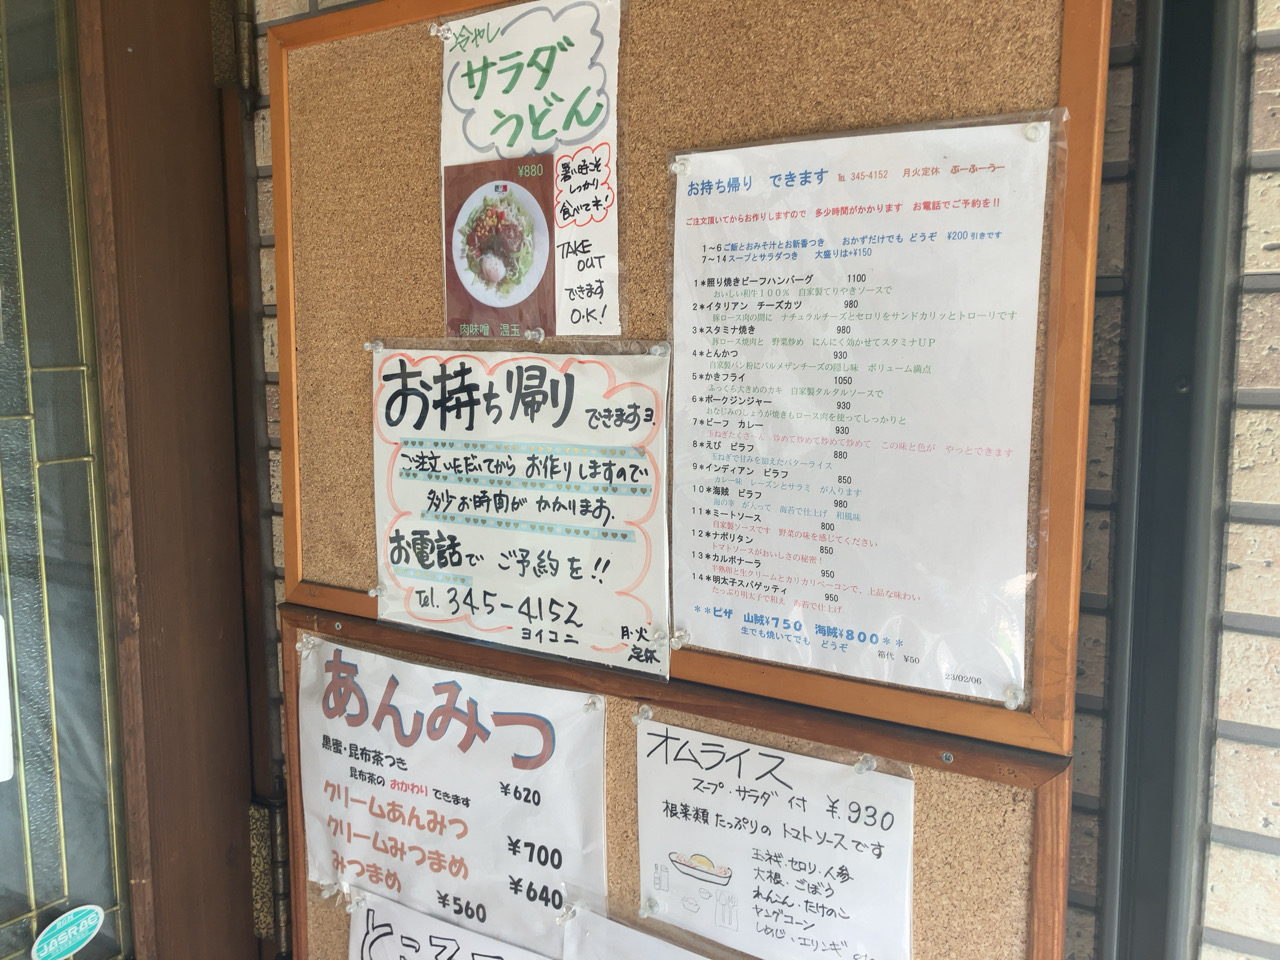 冷やし
サラダ
うどん
¥880
暑い時こそ
しっかり
食べてネ!
TAKE
OUT
できます
O.K!
肉味噌 温玉
お持ち帰り できます
℡ 345-4152 月火定休 ぶーふーうー
ご注文頂いてからお作りしますので 多少時間がかかります お電話でご予約を!!
1~6ご飯とおみそ汁とお新香つき おかずだけでも どうぞ ¥200引きです
7~14スープとサラダつき 大盛りは+¥150
1*照り焼きビーフハンバーグ 1100
おいしい和牛100% 自家製てりやきソースで
2*イタリアン チーズカツ 980
豚ロース肉の間に ナチュラルチーズとセロリをサンドカリッとトローリです
3*スタミナ焼き 980
豚ロース焼肉と 野菜炒め にんにく効かせてスタミナUP
4*とんかつ 930
自家製パン粉にパルメザンチーズの隠し味 ボリューム満点
5*かきフライ 1050
ふっくら大きめのカキ 自家製タルタルソースで
6*ポークジンジャー 930
おなじみのしょうが焼きもロース肉を使ってしっかりと
7*ビーフ カレー 930
玉ねぎたくさ~ん 炒めて炒めて炒めて炒めて この味と色が やっとできます
8*えび ピラフ 880
玉ねぎで甘みを加えたバターライス
9*インディアン ピラフ 850
カレー味 レーズンとサラミ が入ります
10*海賊 ピラフ 980
海の幸 が入って 海苔で仕上げ 和風味
11*ミートソース 800
自家製ソースです 野菜の味を感じてください
12*ナポリタン 850
トマトソースがおいしさの秘密!
13*カルボナーラ 950
半熟卵と生クリームとカリカリベーコンで、上品な味わい
14*明太子スパゲッティ 950
たっぷり明太子で和え 海苔で仕上げ
**ピザ 山賊¥750 海賊¥800**
生でも焼いてでも どうぞ
箱代 ¥50
23/02/06
お持ち帰り できますヨ.
ご注文いただいてから お作りしますので
多少お時間が かかります.
お電話で ご予約を!!
Tel. 345-4152
ヨイコニ
月・火
定休
あんみつ
黒蜜・昆布茶つき
昆布茶の おかわり できます
¥620
クリームあんみつ
¥700
クリームみつまめ
¥640
みつまめ
¥560
オムライス
スープ・サラダ 付 ¥930
根菜類 たっぷりの トマトソースです
玉ネギ・セロリ・人参
大根・ごぼう
れんこん・たけのこ
ヤングコーン
しめじ・エリンギ
ところ
JASRAC